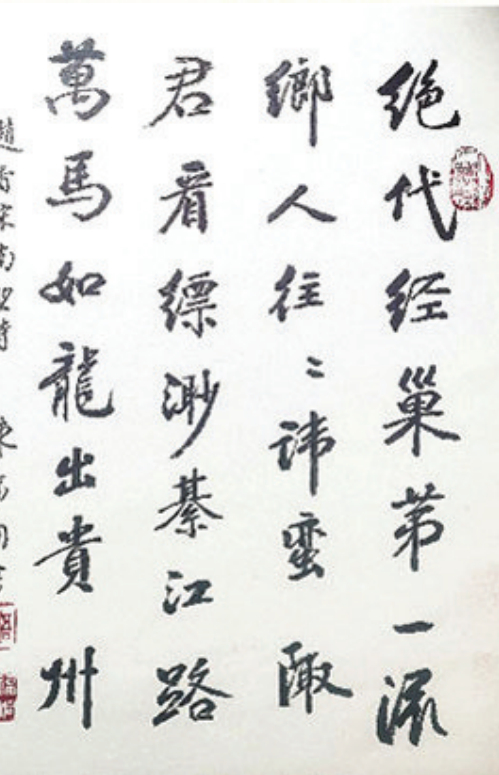 绝代经巢第一流
鄉人往々讳蛮陬
君看缥渺綦江路
萬馬如龍出貴州